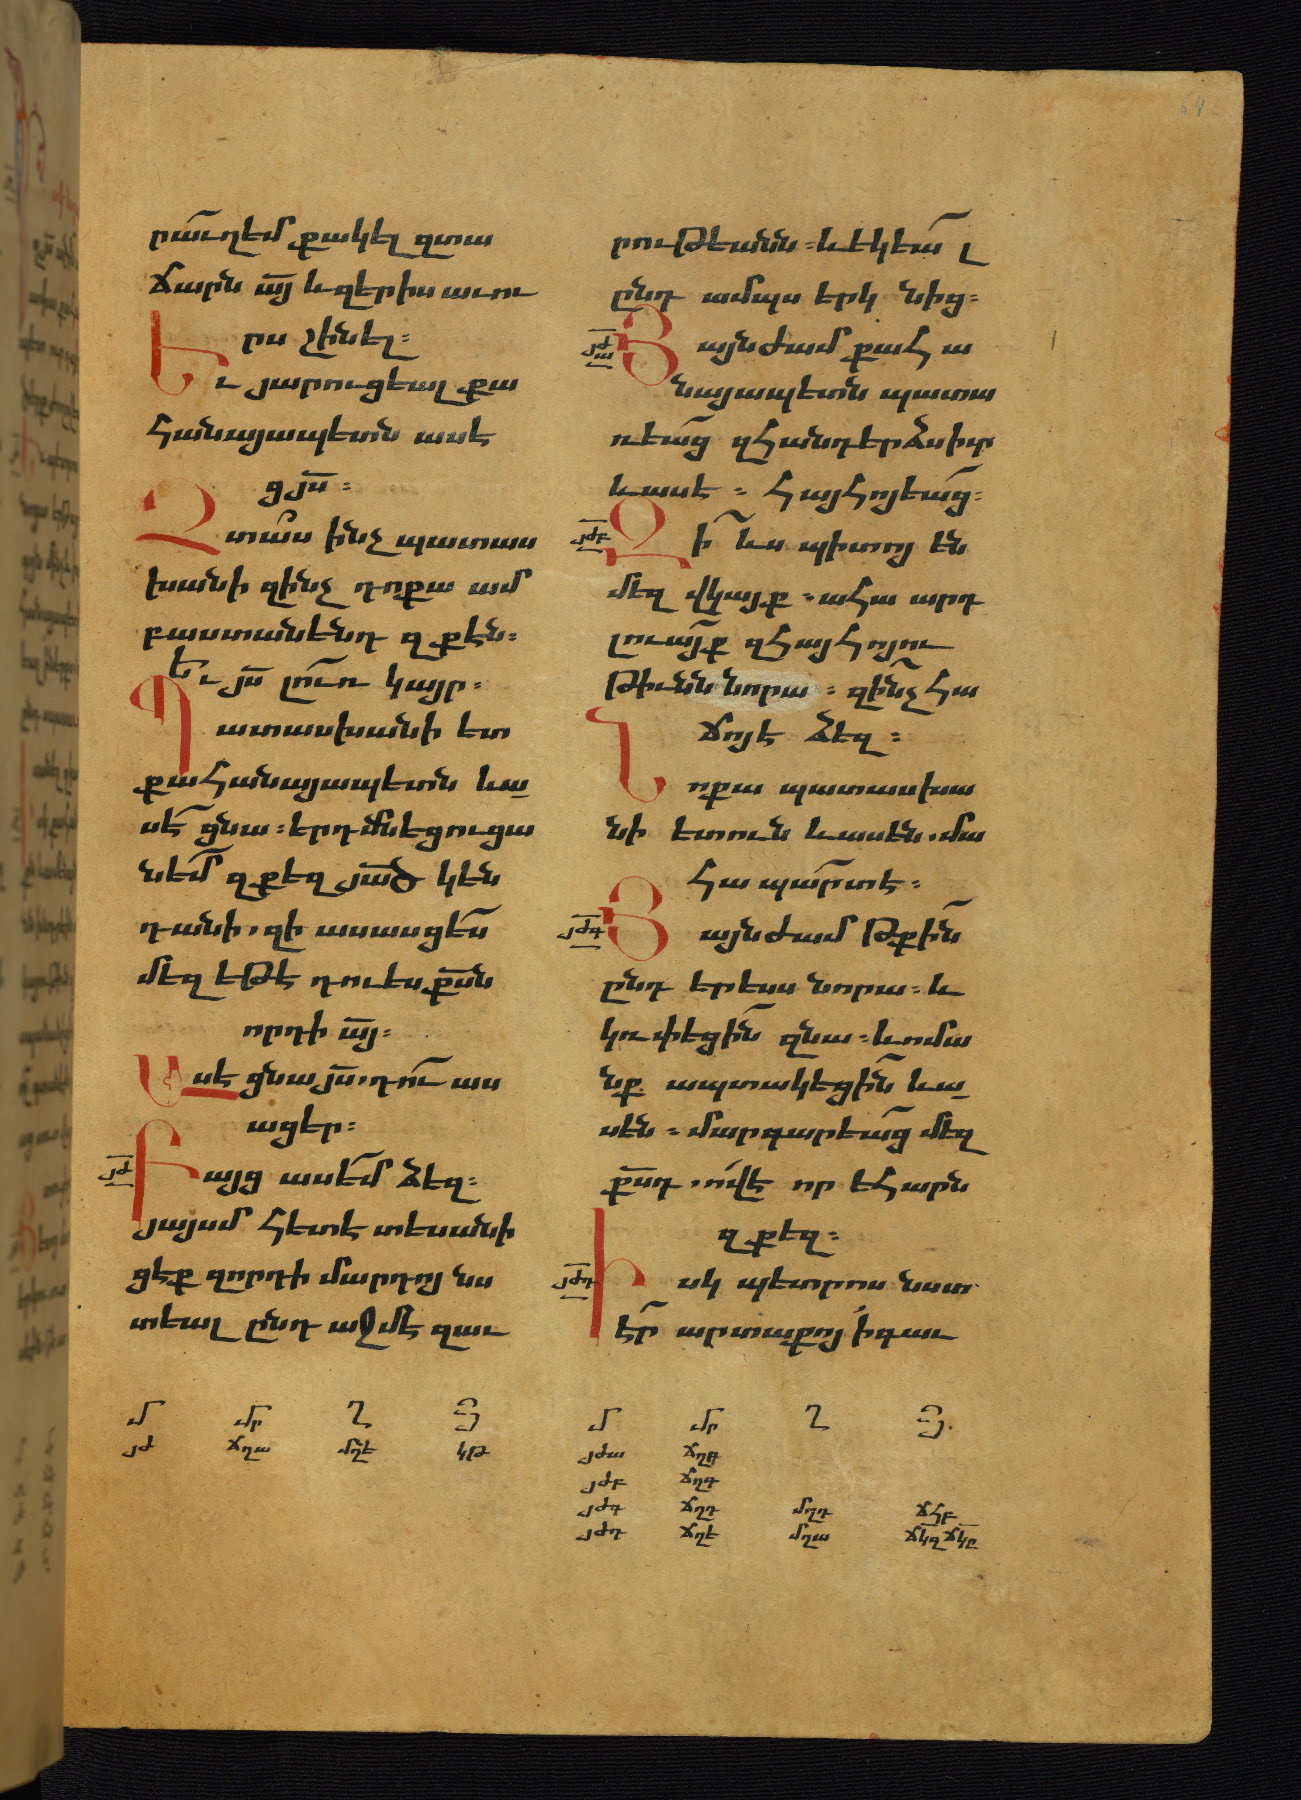 64
րաւղեմ քակել զտա
ճարն ա՟յ և զերիս աւու
րս շինել։
Եւ յարուցեալ քա
հանայապետն ասէ
ցյ՟ս։
Չտաս ինչ պատաս
խանի զինչ դոքա ամ
բաստանենդ զքէն։
Եւ յ՟ս լուռ կայր։
Պատասխանի ետ
քահանայապետն և ա
սէ ցնա։ երդմնեցուցա
նեմ զքեզ յա՟ծ կեն
դանի, զի ասասցես
մեզ եթէ դու ես ք՟սն
որդի ա՟յ։
Ասէ ցնա յ՟ս, դու աս
ացեր։
յժ
Բայց ասեմ ձեզ։
յայսմ հետէ տեսանի
ցէք զորդի մարդոյ նս
տեալ ընդ աջմէ զաւ
րութեանն։ և եկեալ
ընդ ամպս երկնից։
յժա
Յայնժամ քահա
նայապետն պատա
ռեաց զհանդերձսիւր
և ասէ։ հայհոյեաց։
յժբ
Զի ևս պիտոյ են
մեզ վկայք։ ահա արդ
լուայք զհայհոյու
թիւնն նորա։ զինչ հա
ճոյ է ձեզ։
Նոքա պատասխա
նի ետուն և ասեն, մա
հա պարտ է։
յժգ
Յայնժամ թքին
ընդ երեսս նորա։ և
կռփեցին զնա։ և ոմա
նք ապտակեցին և ա
սեն։ մարգարեաց մեզ
ք՟սդ, ո՛վ է որ եհարն
զքեզ։
յժդ
Իսկ պետրոս նստ
էր արտաքոյ ի գաւ
մ մր ղ յ
յժ ճղա մղէ կթ
մ մր ղ յ
յժա ճղբ
յժբ ճղգ
յժգ ճղդ մղդ ճհբ
յժդ ճղե մղա ճկզ ճկը